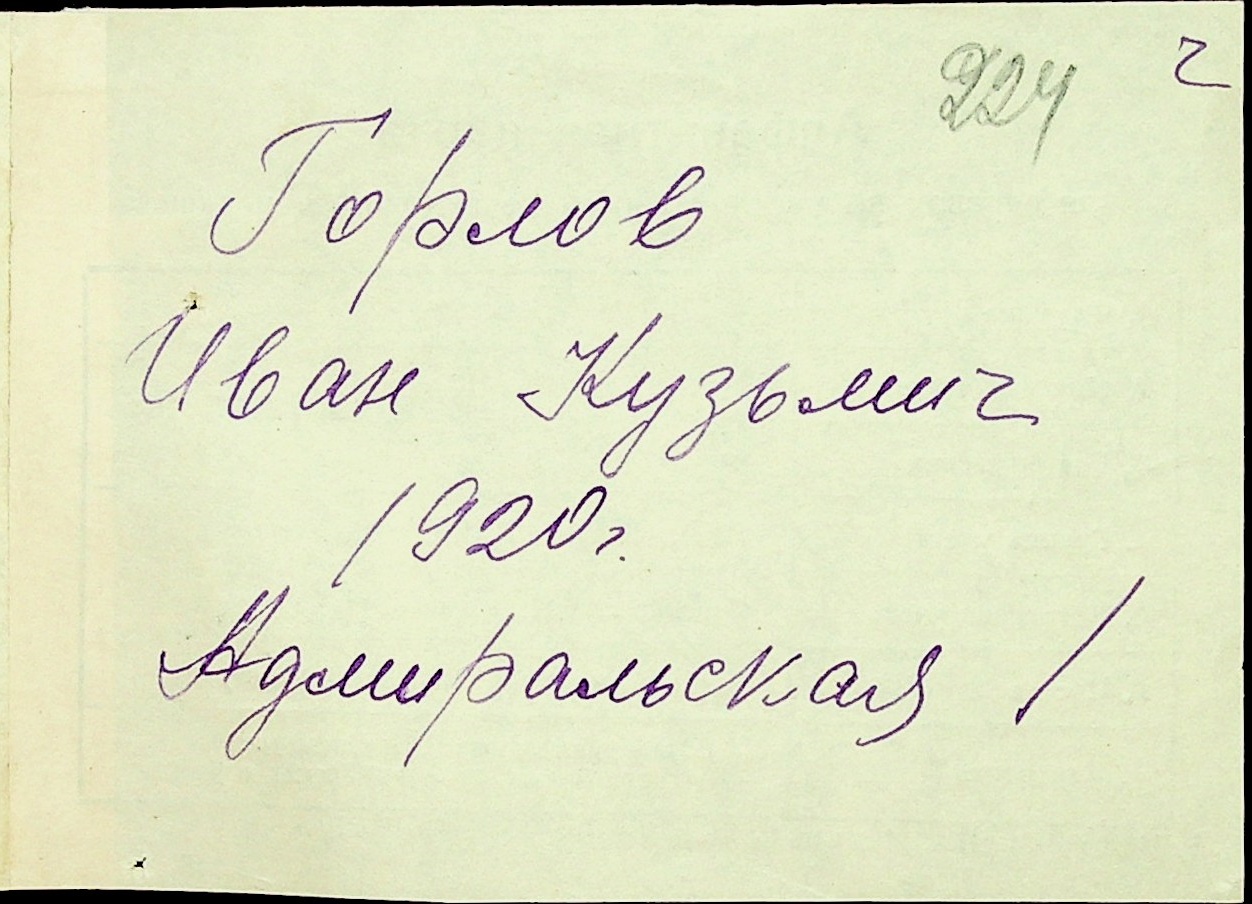 224 ч
Горлов
Иван Кузьмич
1920г.
Адмиральская 1